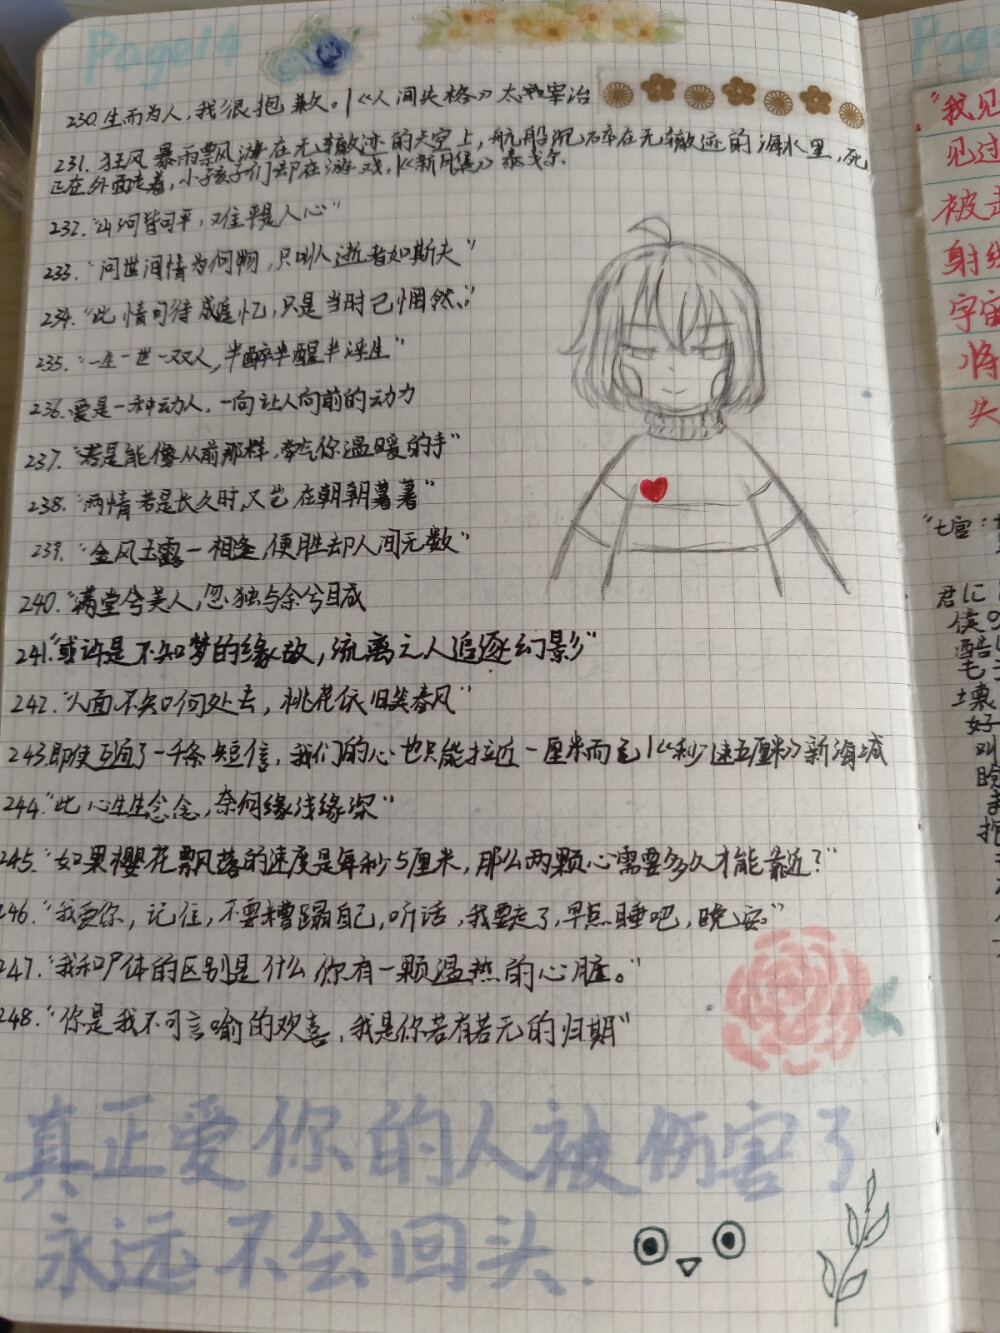 Page14
230.生而为人,我很抱歉。|《人间失格》太宰治
231.狂风暴雨飘游在无辙迹的天空上,航船沉碎在无辙迹的海水里,死
正在外面走着,小孩子们却在游戏,|《新月集》泰戈尔
232.“山河皆可平,难平是人心”
233.“问世间情为何物,只叫人逝者如斯夫”
234.“此情可待成追忆,只是当时已惘然”
235.“一生一世一双人,半醉半醒半浮生”
236.爱是一种动人,一向让人向前的动力
237.“若是能像从前那样,牵起你温暖的手”
238.“两情若是长久时,又岂在朝朝暮暮”
239.“金风玉露一相逢,便胜却人间无数”
240.“满堂兮美人,忽独与余兮目成
241.“或许是不知梦的缘故,流离之人追逐幻影”
242.“人面不知何处去,桃花依旧笑春风”
243.即使互通了一千条短信,我们的心也只能拉近一厘米而已|《秒速五厘米》新海诚
244.“此心生生念念,奈何缘浅缘深”
245.“如果樱花飘落的速度是每秒5厘米,那么两颗心需要多久才能靠近?”
246.“我爱你,记住,不要糟蹋自己,听话,我要走了,早点睡吧,晚安。”
247.“我和尸体的区别是什么 你有一颗温热的心脏。”
248.“你是我不可言喻的欢喜,我是你若有若无的归期”
真正爱你的人被伤害了
永远不会回头.
Page
“我见
见过
被击
射线
宇宙
将
失
“七宫:
君に
僕の
酷
毛
壊
好